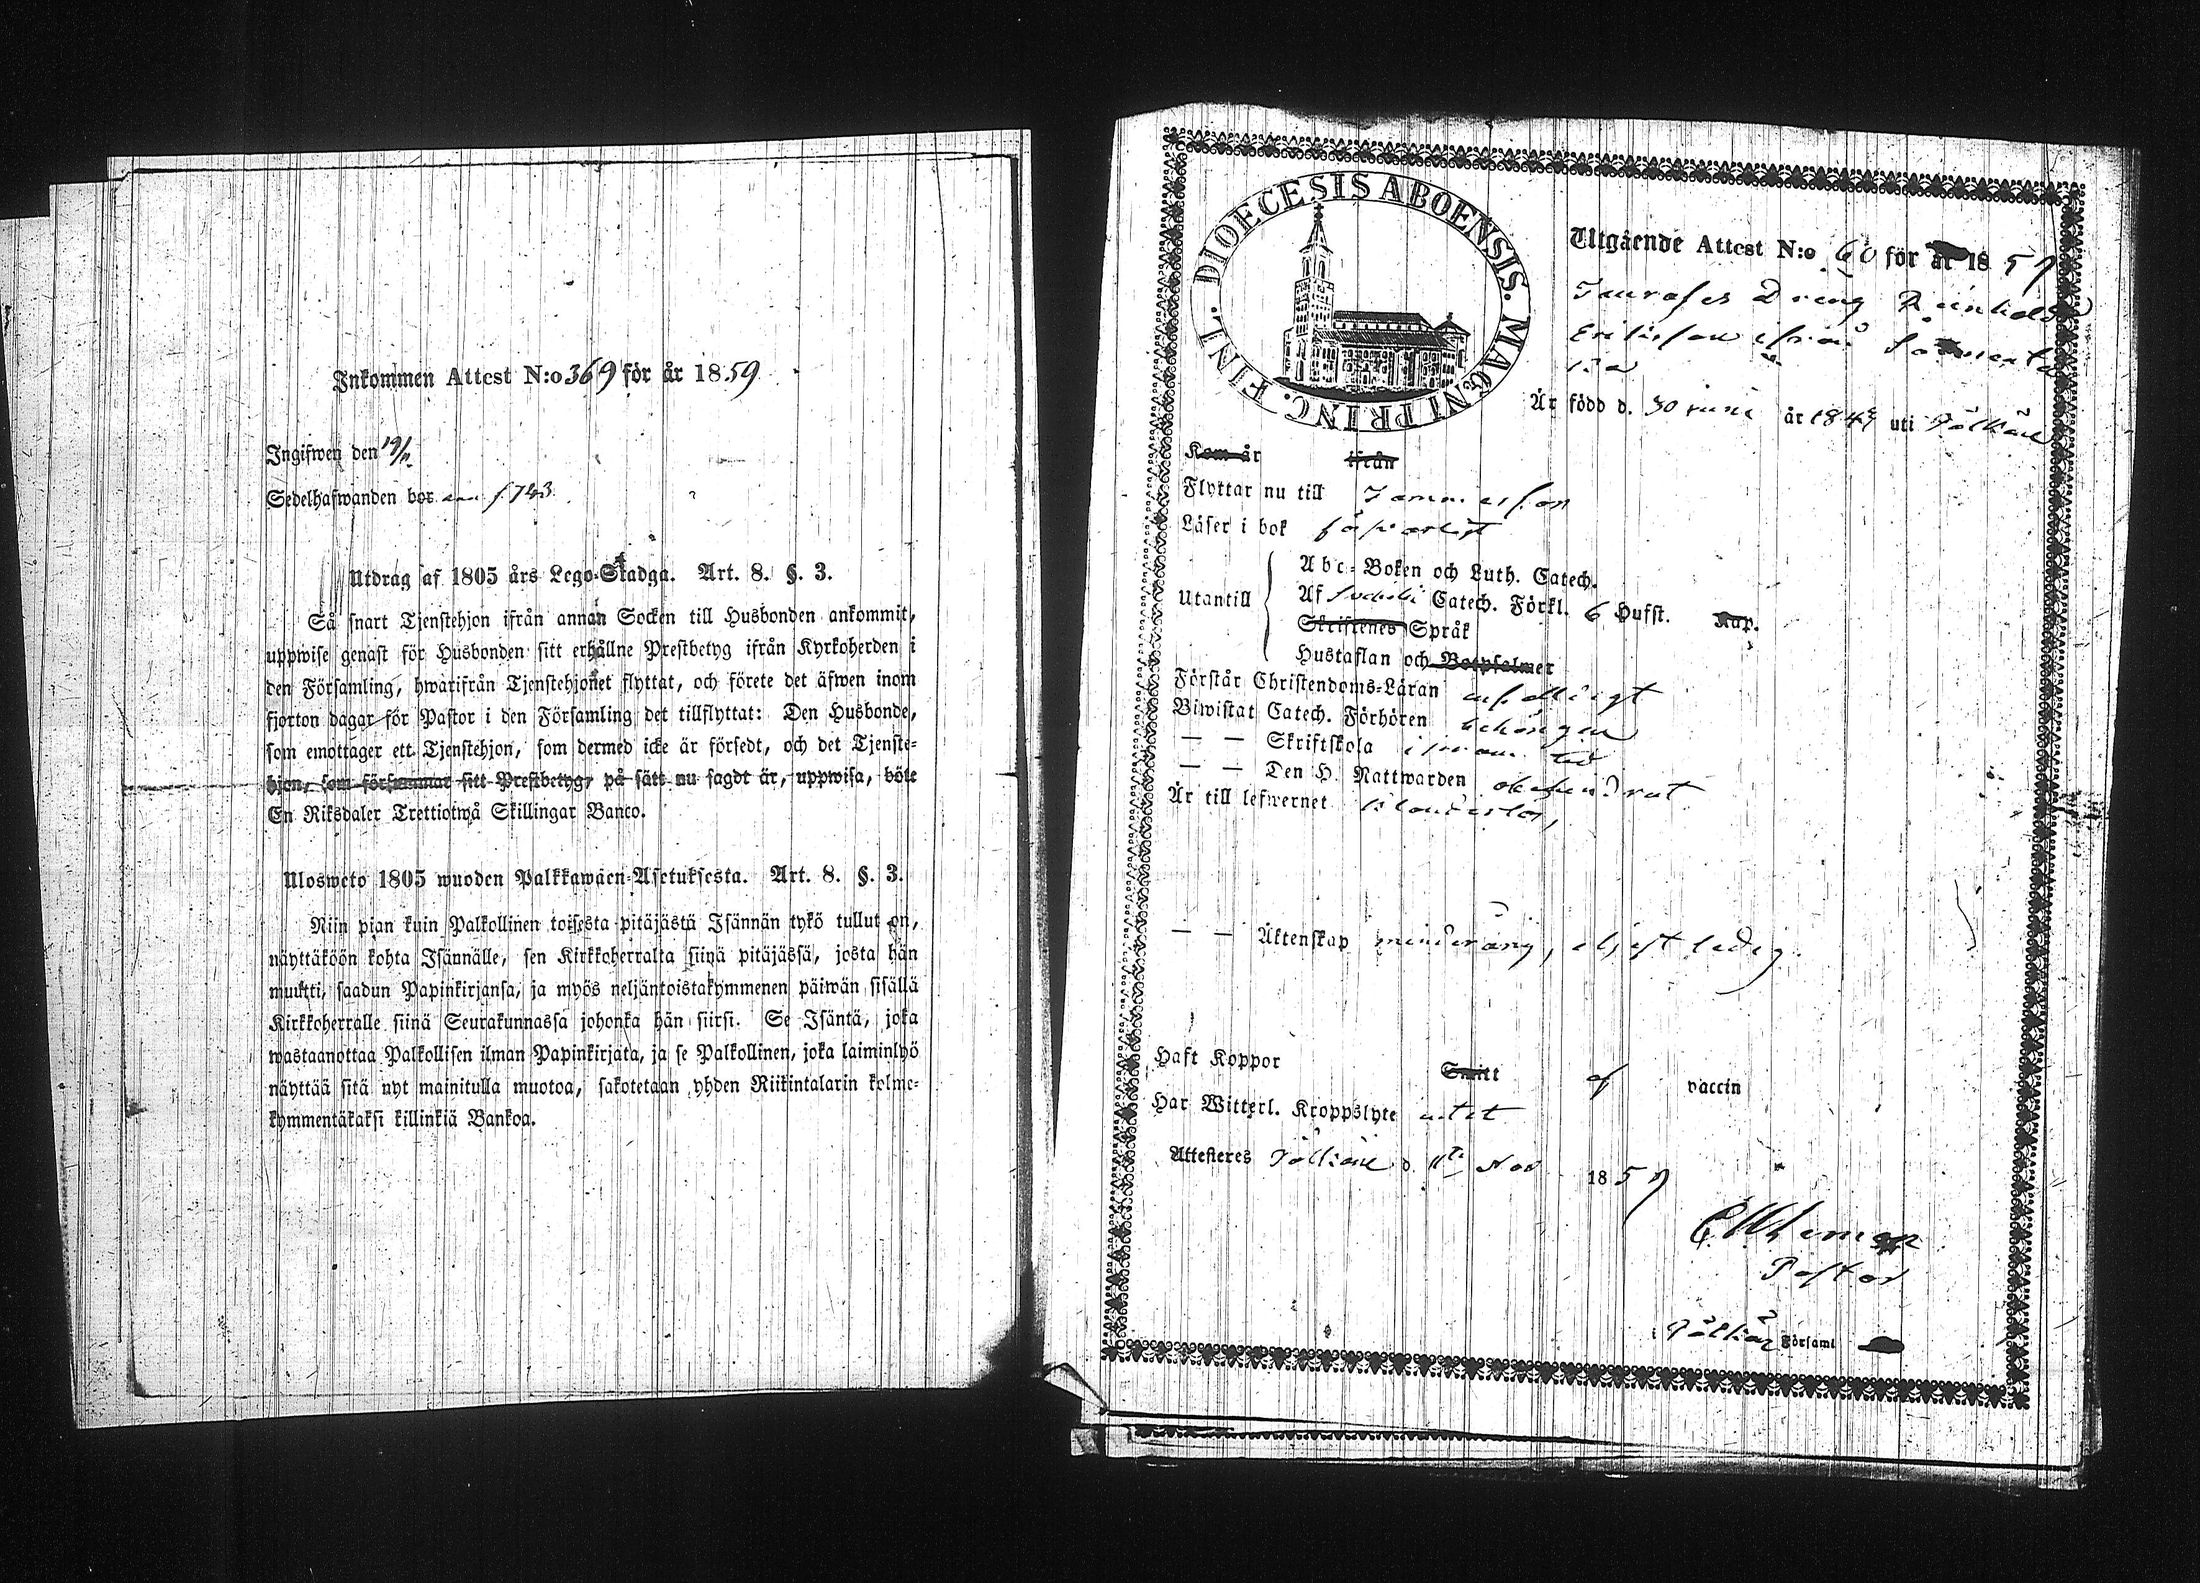 Inkommen Attest N:o 369 för år 1859
Ingifwen den 19/11
Sedelhafwanden bor f 743
Utdrag af 1805 års Lego-Stadga. Art. 8. §. 3.
Så snart Tjenstehjon ifrån annan Socken till Husbonden ankommit,
uppwise genast för Husbonden sitt erhållne Prestbetyg ifrån Kyrkoherden i
den Församling, hwarifrån Tjenstehjonet flyttat, och förete det äfwen inom
fjorton dagar för Pastor i den Församling det tillflyttat: Den Husbonde,
som emottager ett Tjenstehjon, som dermed icke är försedt, och det Tjenste-
hjon, som försummar sitt Prestbetyg, på sätt nu sagdt är, uppwisa, böte
En Riksdaler Trettiotwå Skillingar Banco.
Ulosweto 1805 wuoden Palkkawäen-Asetuksesta. Art. 8. §. 3.
Niin pian kuin Palkollinen toisesta pitäjästä Isännän tykö tullut on,
näyttäköön kohta Isännälle, sen Kirkkoherralta siinä pitäjässä, josta hän
muutti, saadun Papinkirjansa, ja myös neljäntoistakymmenen päiwän sisällä
Kirkkoherralle siinä Seurakunnassa johonka hän siirsi. Se Isäntä, joka
wastaanottaa Palkollisen ilman Papinkirjata, ja se Palkollinen, joka laiminlyö
näyttää sitä nyt mainitulla muotoa, sakotetaan yhden Riikintalarin kolme-
kymmentäkaksi killinkiä Bankoa.
DIOECESIS ABOENSIS. MAGNI PRINC. FINL.
Utgående Attest N:o 60 för år 1859
Dreng Reinhold
Eriksson ifrån
by
Är född d. 30 Juni år 184 uti Pälkäne
Kom år ifrån
Flyttar nu till Tammerfors
Läser i bok försvarligt
Utantill
Abc-Boken och Luth. Catech.
Af Svebelii Catech. Förkl. 6 Hufst. Kap.
Skriftenes Språk
Hustaflan och Botpsalmer
Förstår Christendoms-Läran nöjaktigt
Biwistat Catech. Förhören behörigen
— — Skriftskola
— — Den H. Nattwarden obehindrat
Är till lefwernet klanderlös,
— — Äktenskap minderårig, eljest ledig.
Haft Koppor Smitt af vaccin
Har Witterl. Kroppslyte intet
Attesteres Pälkäne d. 11te Nov 1859
Pastor
i Pälkäne Församl